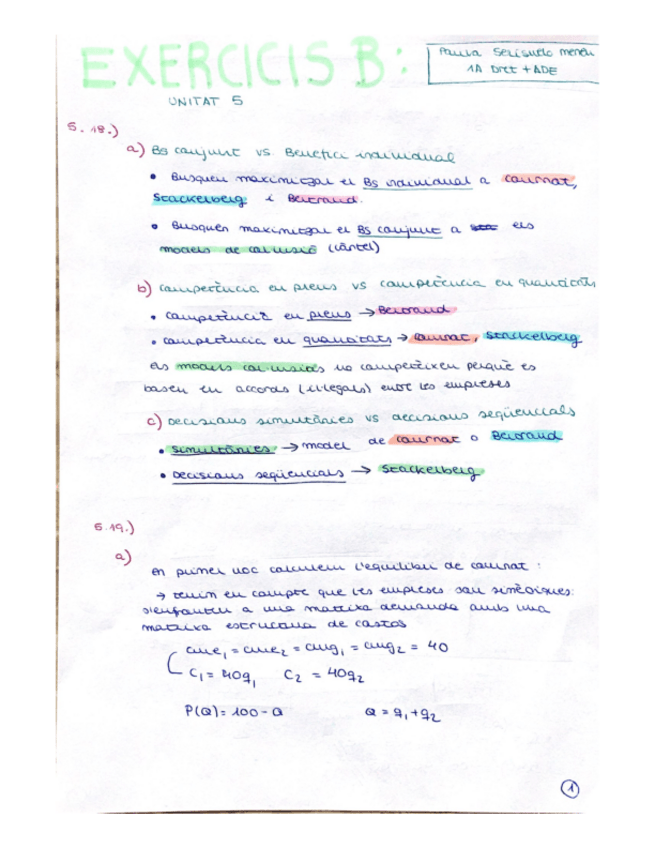 EXERCICIS B:
Paula Serisuelo Meneu
1A Dret + ADE
UNITAT 5
5.18.)
a) Bº conjunt vs. Benefici individual
• Busquen maximitzar el Bº individual a Cournat,
Stackelberg i Bertrand.
• Busquen maximitzar el Bº conjunt a els
models de col·lusió (càrtel)
b) competència en preus vs competència en quantitats
• competència en preus → Bertrand
• competència en quantitats → Cournat, Stackelberg
els models col·lusius no competeixen perquè es
basen en acords (il·legals) entre les empreses
c) Decisions simultànies vs decisions seqüencials
• Simultànies → model de Cournat o Bertrand
• Decisions seqüencials → Stackelberg
5.19.)
a)
en primer lloc calculem l'equilibri de Cournat :
→ tenin en compte que les empreses són simètriques:
s'enfronten a una mateixa demanda amb una
mateixa estructura de costos
cme₁ = cme₂ = cmg₁ = cmg₂ = 40
C₁ = 40q₁ C₂ = 40q₂
P(Q) = 100 - Q Q = q₁ + q₂
1